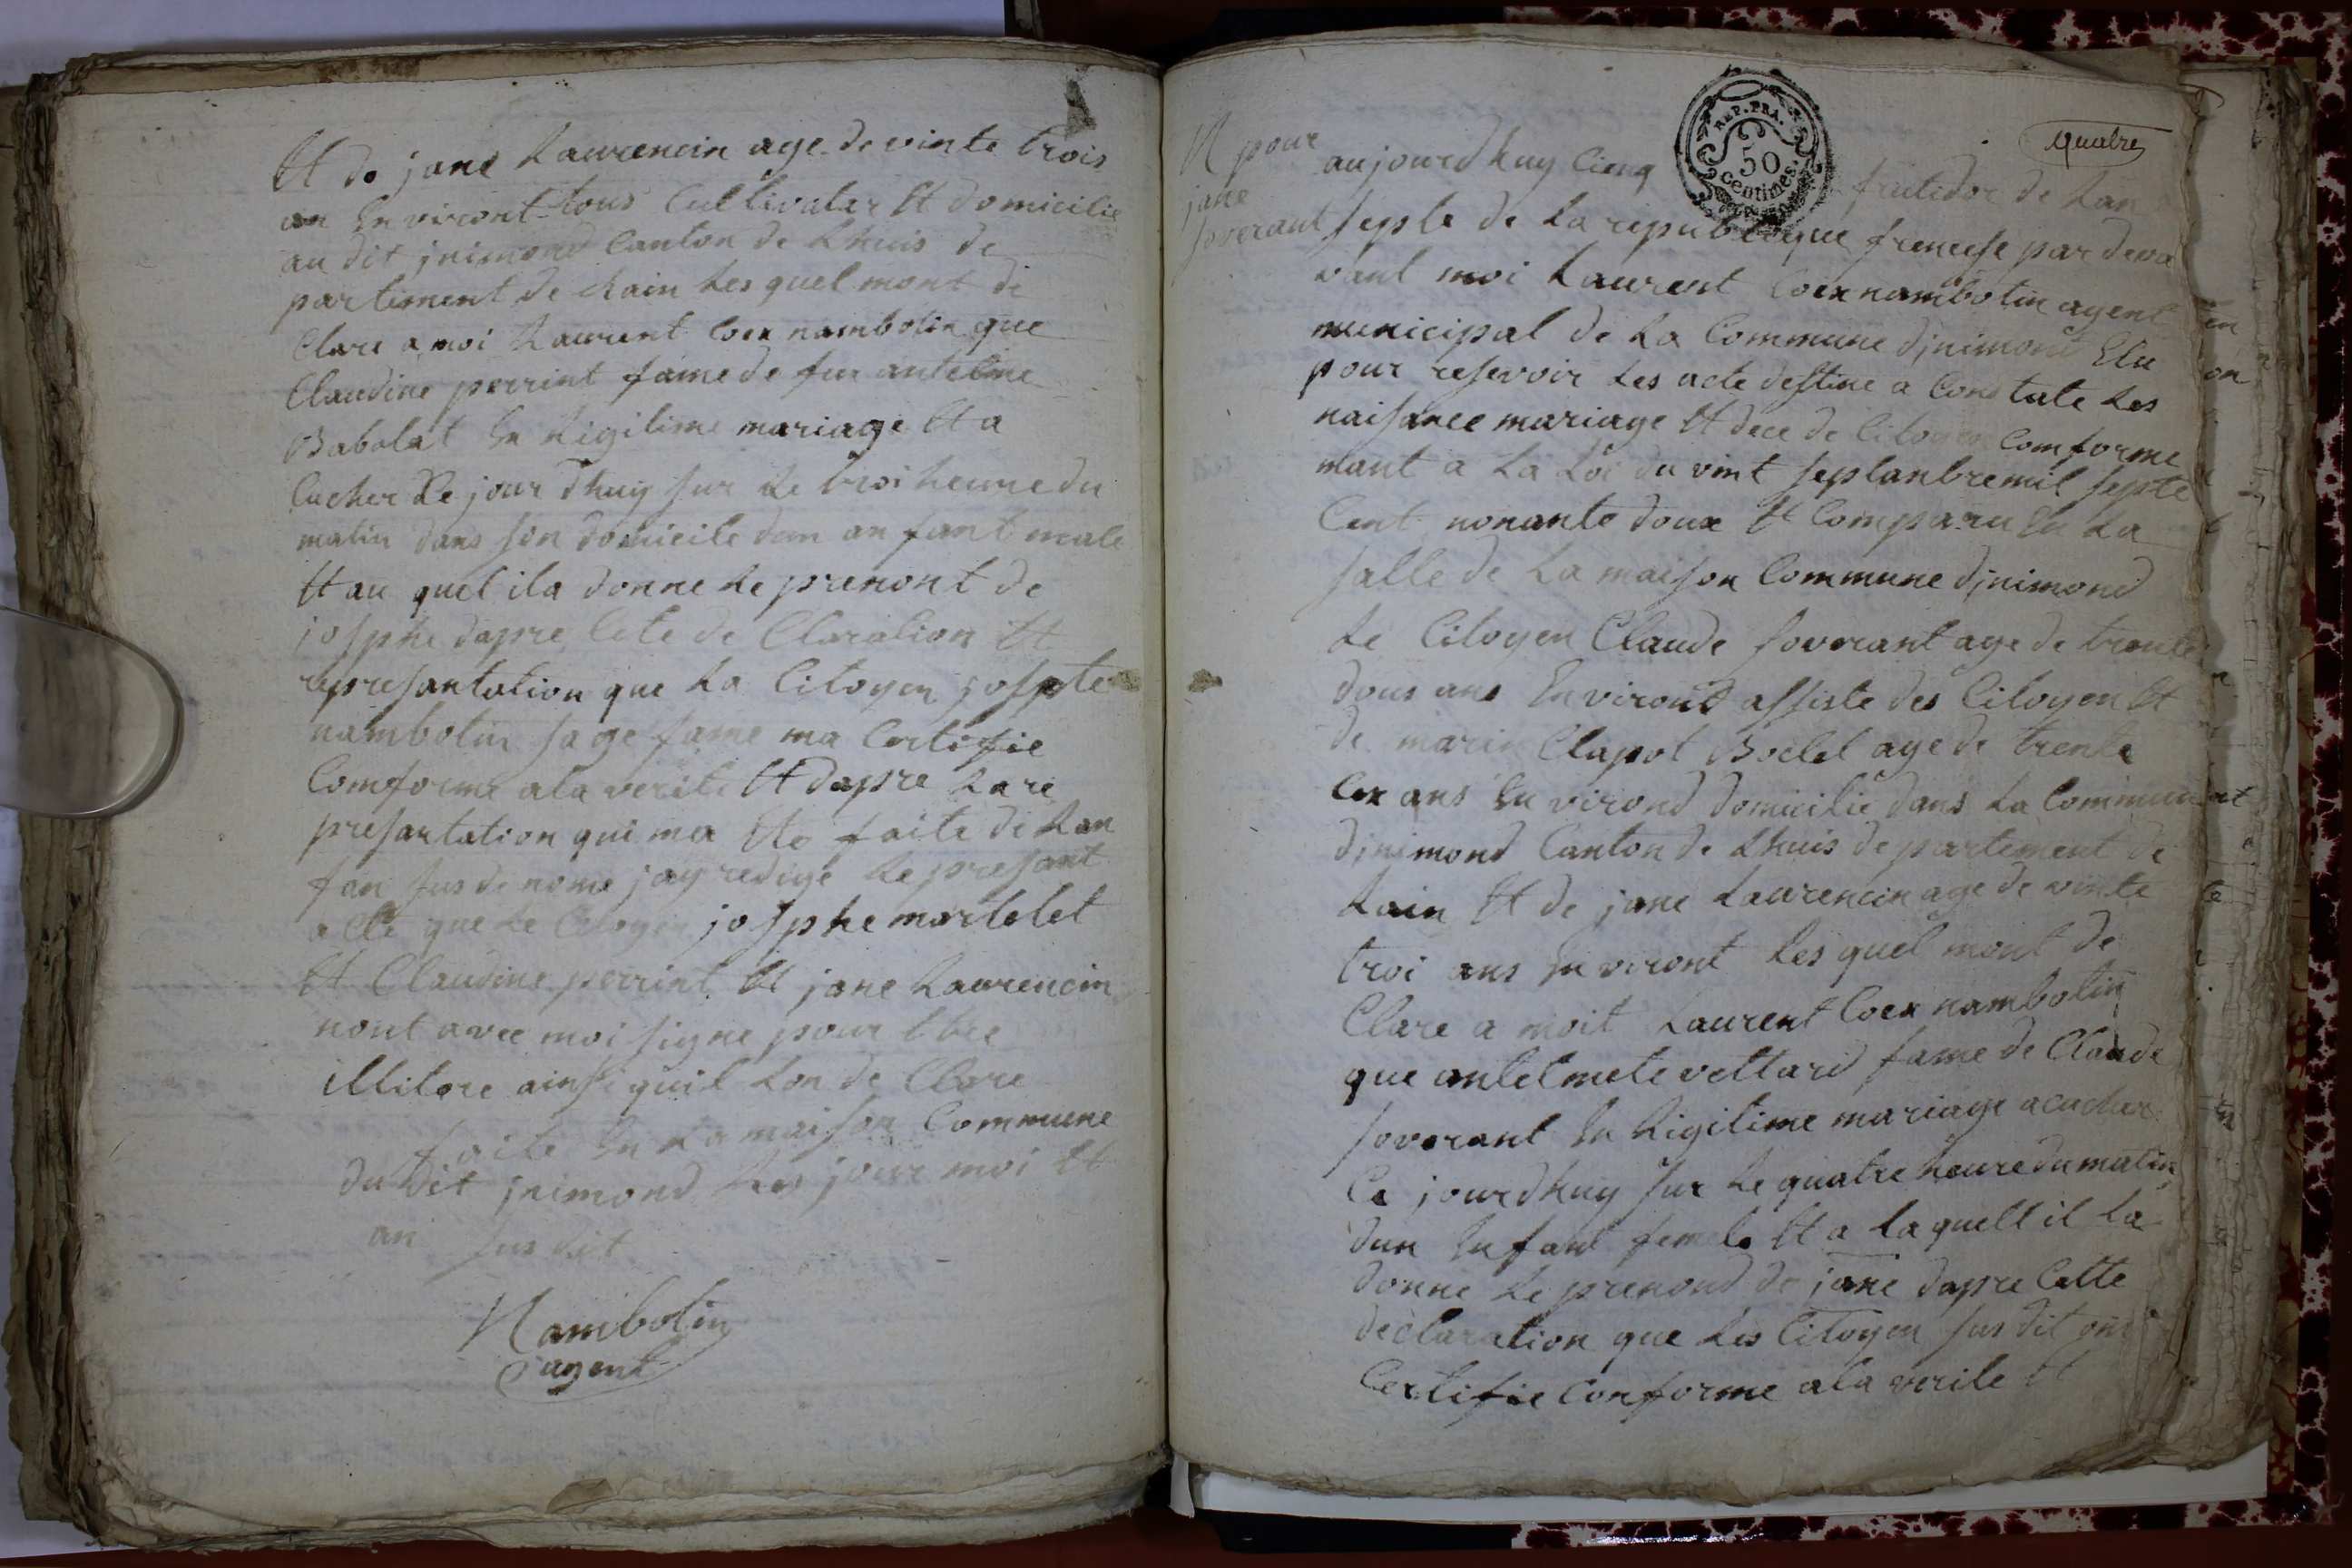 Et de jane Laurencin age de vinte trois
an En viront tous Cultivater Et domicilie
au dit jnimond Canton de Lhuis de
partement de Lain Les quel mont de
Clare a moi Laurent Coex nambotin que
Claudine perrint fame de feu antelme
Babolat En Ligitime mariage Et a
Cucher Le jour dhuy sur Le troi heure du
matin dans son domicile dun an fant male
Et au quel il a donne Le prenont de
josphe dapre Cete de Claration Et
represantation que La Citoyen jospte
nambotin sage fame ma Certifie
Comforme a la verite Et dapre La re
presantation qui ma Ete faite de Lan
fan sus de nome jay redige Le presant
acte que Le Citoyen josphe martelet
Et Claudine perrint Et jane Laurencin
nont avec moi signe pour Etre
illitere ainsi quil Lon de Clare
faite En La maison Commune
du dit jnimond Les jour moi Et
an sus dit
Nambotin
agent
quatre
REP. FRA.
50
centimes.
N pour
jane
soverant
aujourdhuy Cienq frutidor de Lan
septe de La republique frencese par deva
vant moi Laurent Coex nambotin agent
municipal de La Commune djnimond Elu
pour resevoir Les acte destine a Constate Les
naisance mariage Et dece de Citoyen Comforme
mant a La Loi du vint septanbre mil septe
Cent nonante doux Et Comparu En La
salle de La maison Commune djnimond
Le Citoyen Claude soverant age de trente
dous ans En virond assiste des Citoyen Et
de marin Clapot Boelet age de trente
Cex ans En virond domicilie dans La Commune
djnimond Canton de Lhuis de partement de
Lain Et de jane Laurencin age de vinte
troi ans En viront Les quel mont de
Clare a moit Laurent Coex nambotin
que antelmete vettard fame de Claude
soverant En Ligitime mariage acucher
Ce jourdhuy sur Le quatre heure du matin
dun Enfant femele Et a La quell il La
donne Le prenond de jane dapre Cette
declaration que Les Citoyen sus dit ont
Certifie Conforme a la verite Et